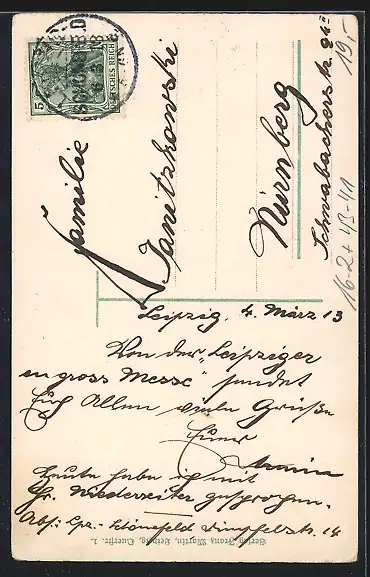 Familie
Janitzkowski
Nürnberg
Schwabacherstr. 92 II
19,-
16-2+43-41
Leipzig, 4. März 13
Von der „Leipziger
en gross Messe“ sendet
Euch Allen viele Grüße
Euer
Armin
Heute habe ich mit
Hr. Niederreiter gesprochen.
Abs: Lpz.- Schönefeld Dimpfelstr. 14
Verlag Franz Martin, Leipzig, Querstr. 1.